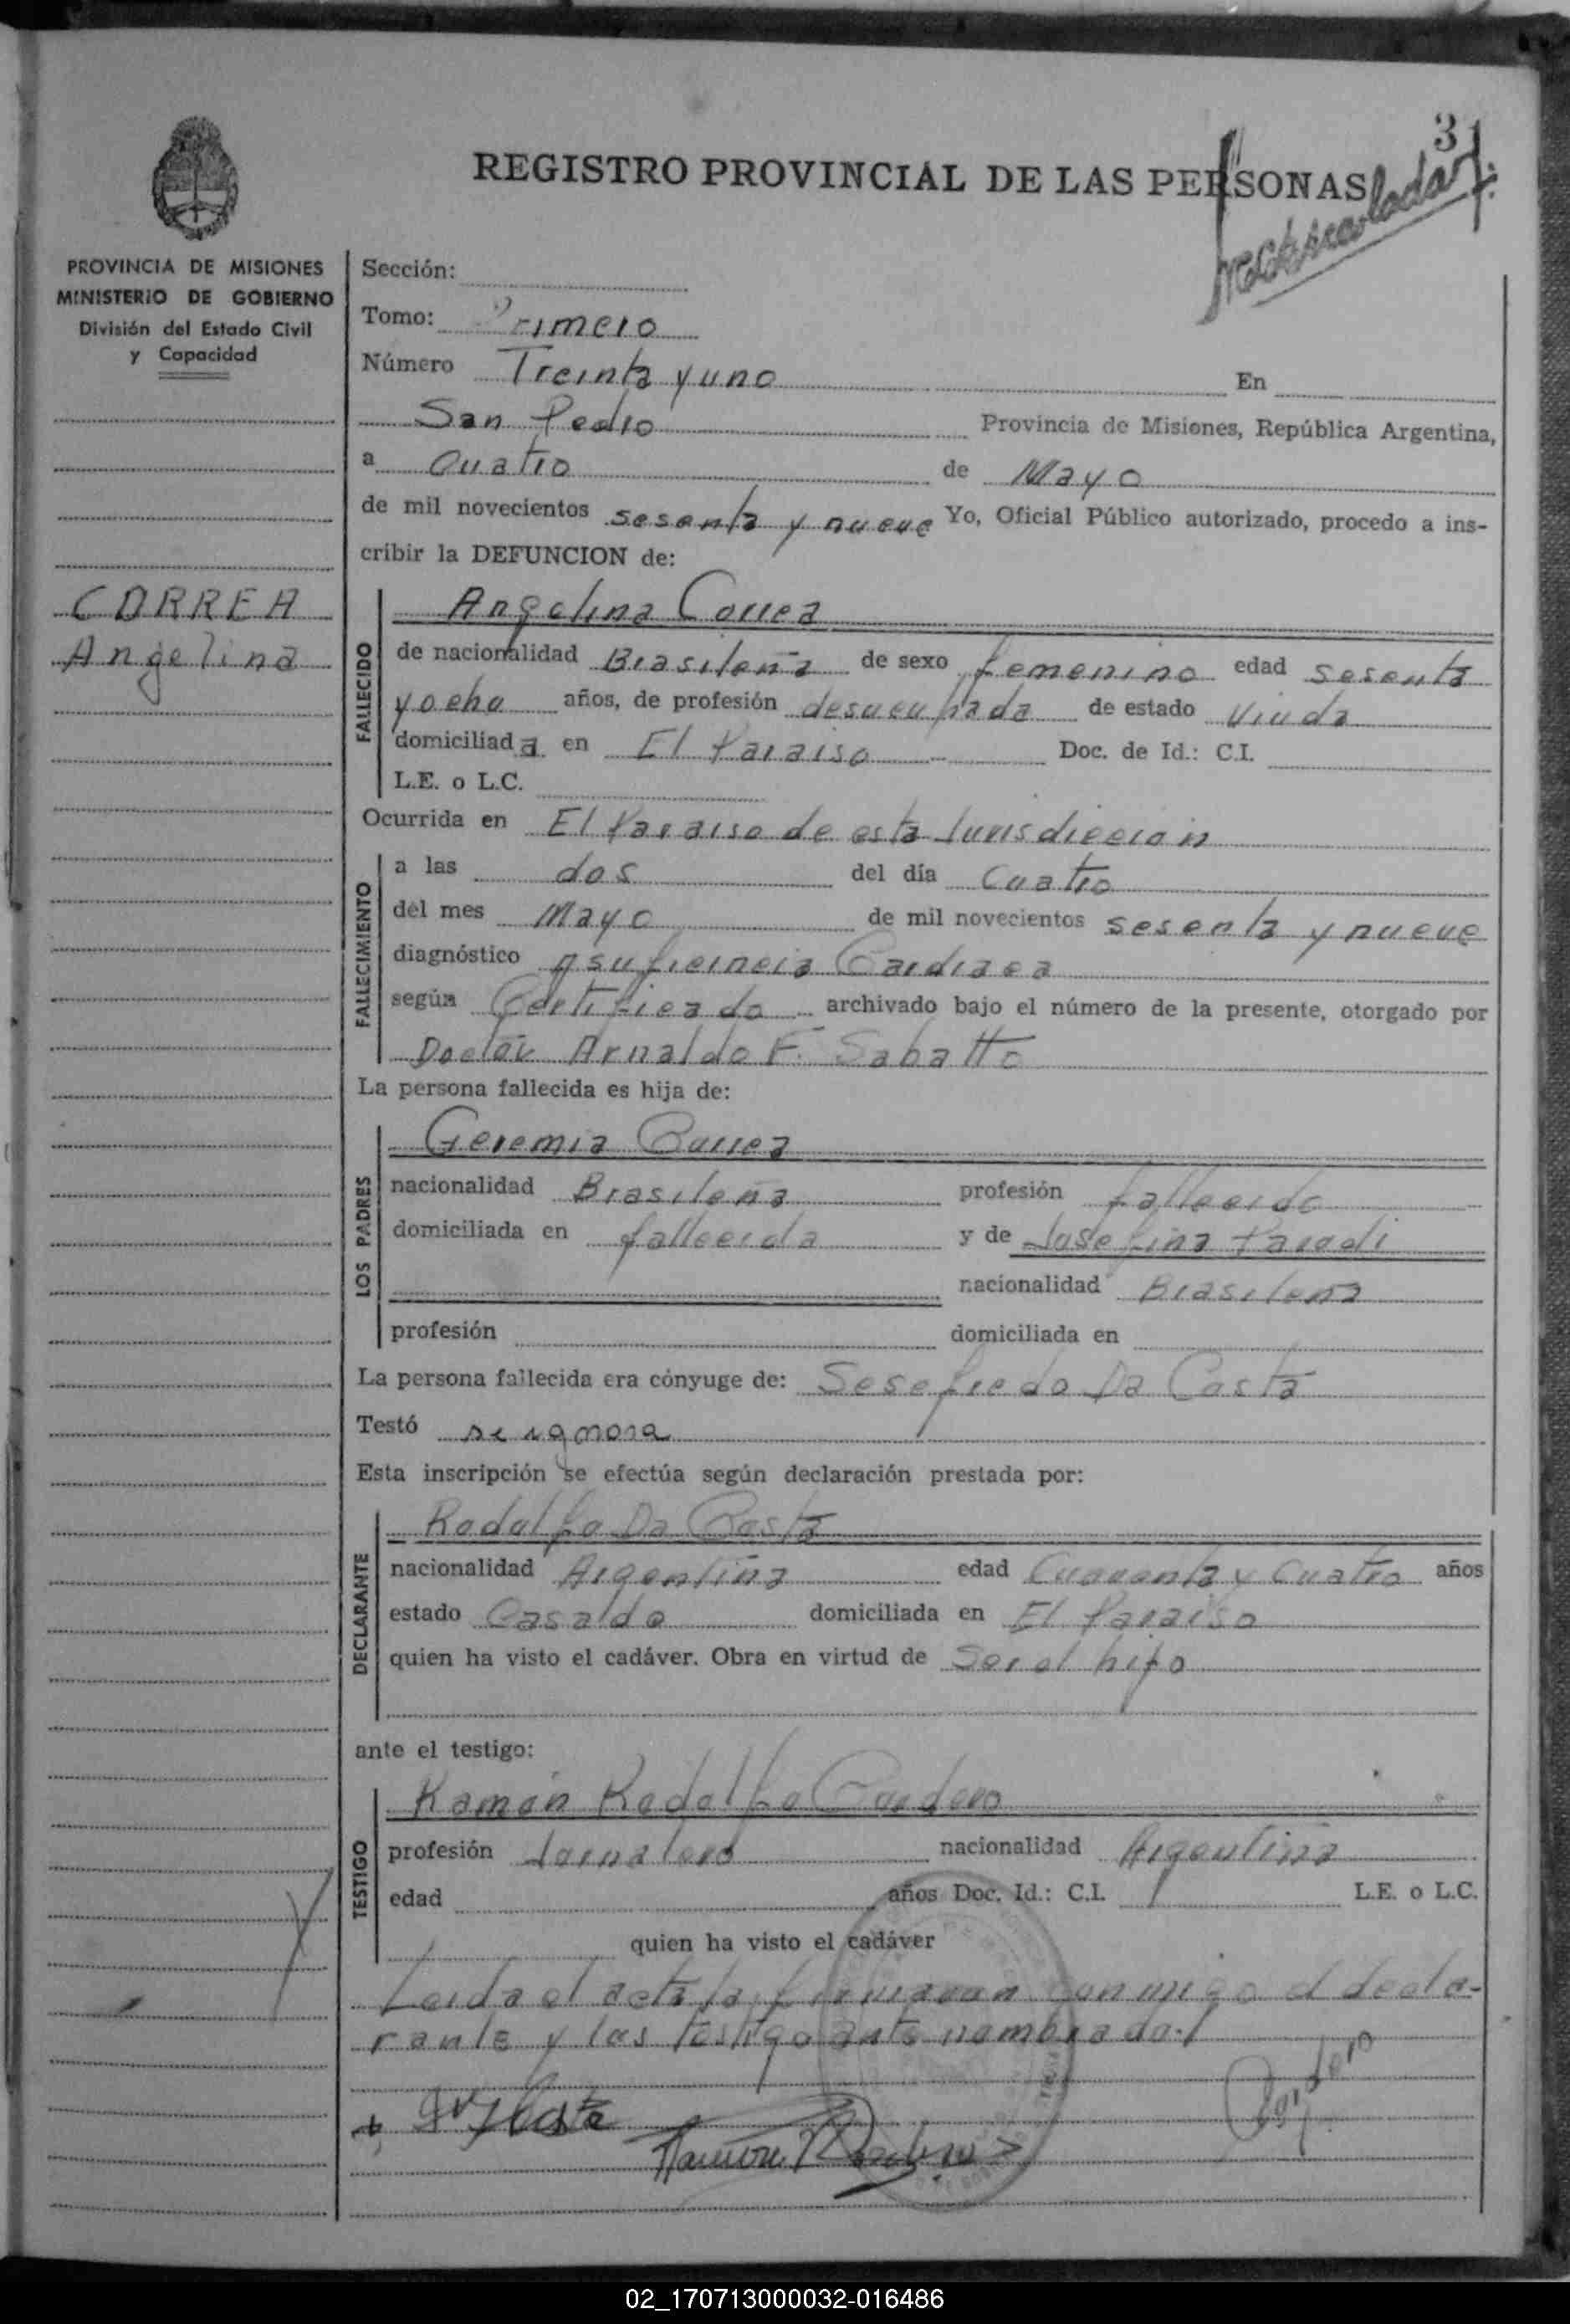 31
REGISTRO PROVINCIAL DE LAS PERSONAS
PROVINCIA DE MISIONES
MINISTERIO DE GOBIERNO
División del Estado Civil
y Capacidad
CORREA
Angelina
Sección:
Tomo: Primero
Número Treinta y uno En
San Pedro Provincia de Misiones, República Argentina,
a Cuatro de Mayo
de mil novecientos sesenta y nueve Yo, Oficial Público autorizado, procedo a ins-
cribir la DEFUNCION de:
FALLECIDO
Angelina Correa
de nacionalidad Brasileña de sexo femenino edad sesenta
y ocho años, de profesión desocupada de estado Viuda
domiciliada en El Paraiso Doc. de Id.: C.I.
L.E. o L.C.
Ocurrida en El Paraiso de esta Jurisdiccion
FALLECIMIENTO
a las dos del día Cuatro
del mes Mayo de mil novecientos sesenta y nueve
diagnóstico Cardiaca
según Certificado archivado bajo el número de la presente, otorgado por
Doctor Arnaldo F. Sabatto
La persona fallecida es hija de:
LOS PADRES
Geremia Correa
nacionalidad Brasileña profesión fallecido
domiciliada en fallecida y de Josefina
nacionalidad Brasilena
profesión domiciliada en
La persona fallecida era cónyuge de: Sesefredo Da Costa
Testó se ignora
Esta inscripción se efectúa según declaración prestada por:
DECLARANTE
Rodolfo Da Costa
nacionalidad Argentina edad Cuarenta y Cuatro años
estado Casado domiciliada en El Paraiso
quien ha visto el cadáver. Obra en virtud de Ser el hijo
ante el testigo:
TESTIGO
Ramón Rodolfo Cordero
profesión Jornalero nacionalidad Argentina
edad años Doc. Id.: C.I. L.E. o L.C.
quien ha visto el cadáver
Leida el acta la firmaron conmigo el decla-
rante y los testigo ante nombrado.
02_170713000032-016486